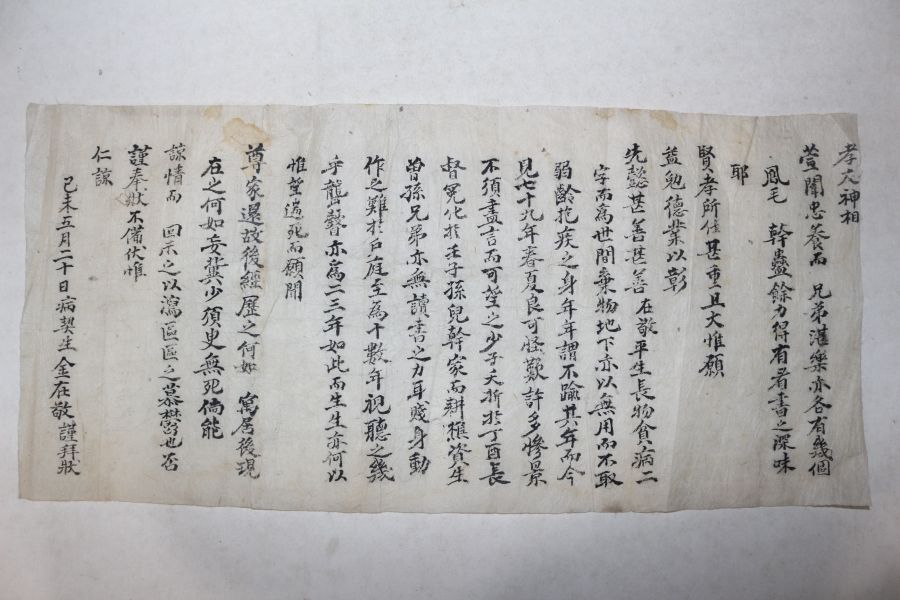 孝犬神相
萱闈忠養而 兄弟湛樂亦各有幾個
鳳毛 幹蠱餘力得有看書之深味
耶
賢孝所任甚重且大惟願
益勉德業以彰
先懿甚善甚善 在敬平生長物貧病二
字而為世間棄物地下亦以無用而不取
弱齡抱疾之身年年謂不踰其年而今
見七十九年春夏良可怪歎許多慘景
不須盡言而可望之少子夭折於丁酉長
督冤化於壬子孫兒幹家而耕樵資生
曾孫兄弟亦無讀書之力耳賤身動
作之難於戶庭至為十數年視聽之幾
乎聾瞽亦為二三年如此而生生亦何以
惟望遄死而願聞
尊家還故後經歷之何如 寓居後現
在之何如妄冀少須臾無死倘能
諒情而 回示之以瀉區區之慕鬱也否
謹奉狀不備伏惟
仁諒
己未五月二十日病契生金在敬謹拜狀